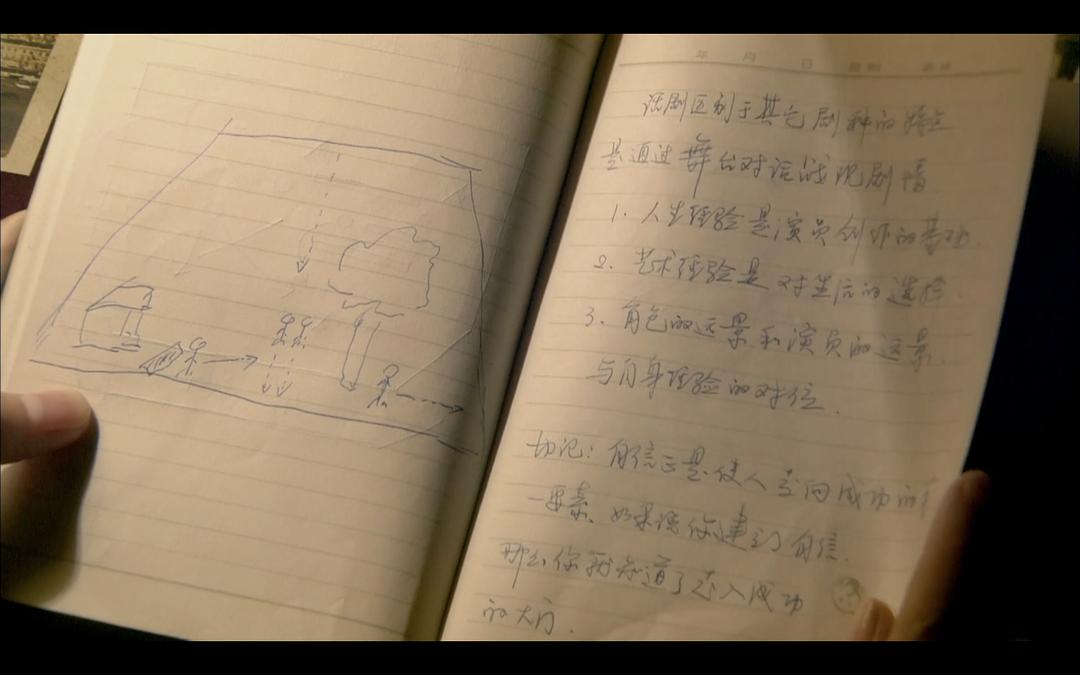 年 月 日 星期
话剧区别于其它剧种的特点
是通过舞台对话战现剧情
1. 人生经验是演员创作的基功.
2. 艺术经验是对生后的选择.
3. 角色的远景和演员的远景.
与自身经验的对位.
切记: 自信正是使人走向成功的
一要素. 如果你建立了自信.
那么你就知道了走入成功
的大门.